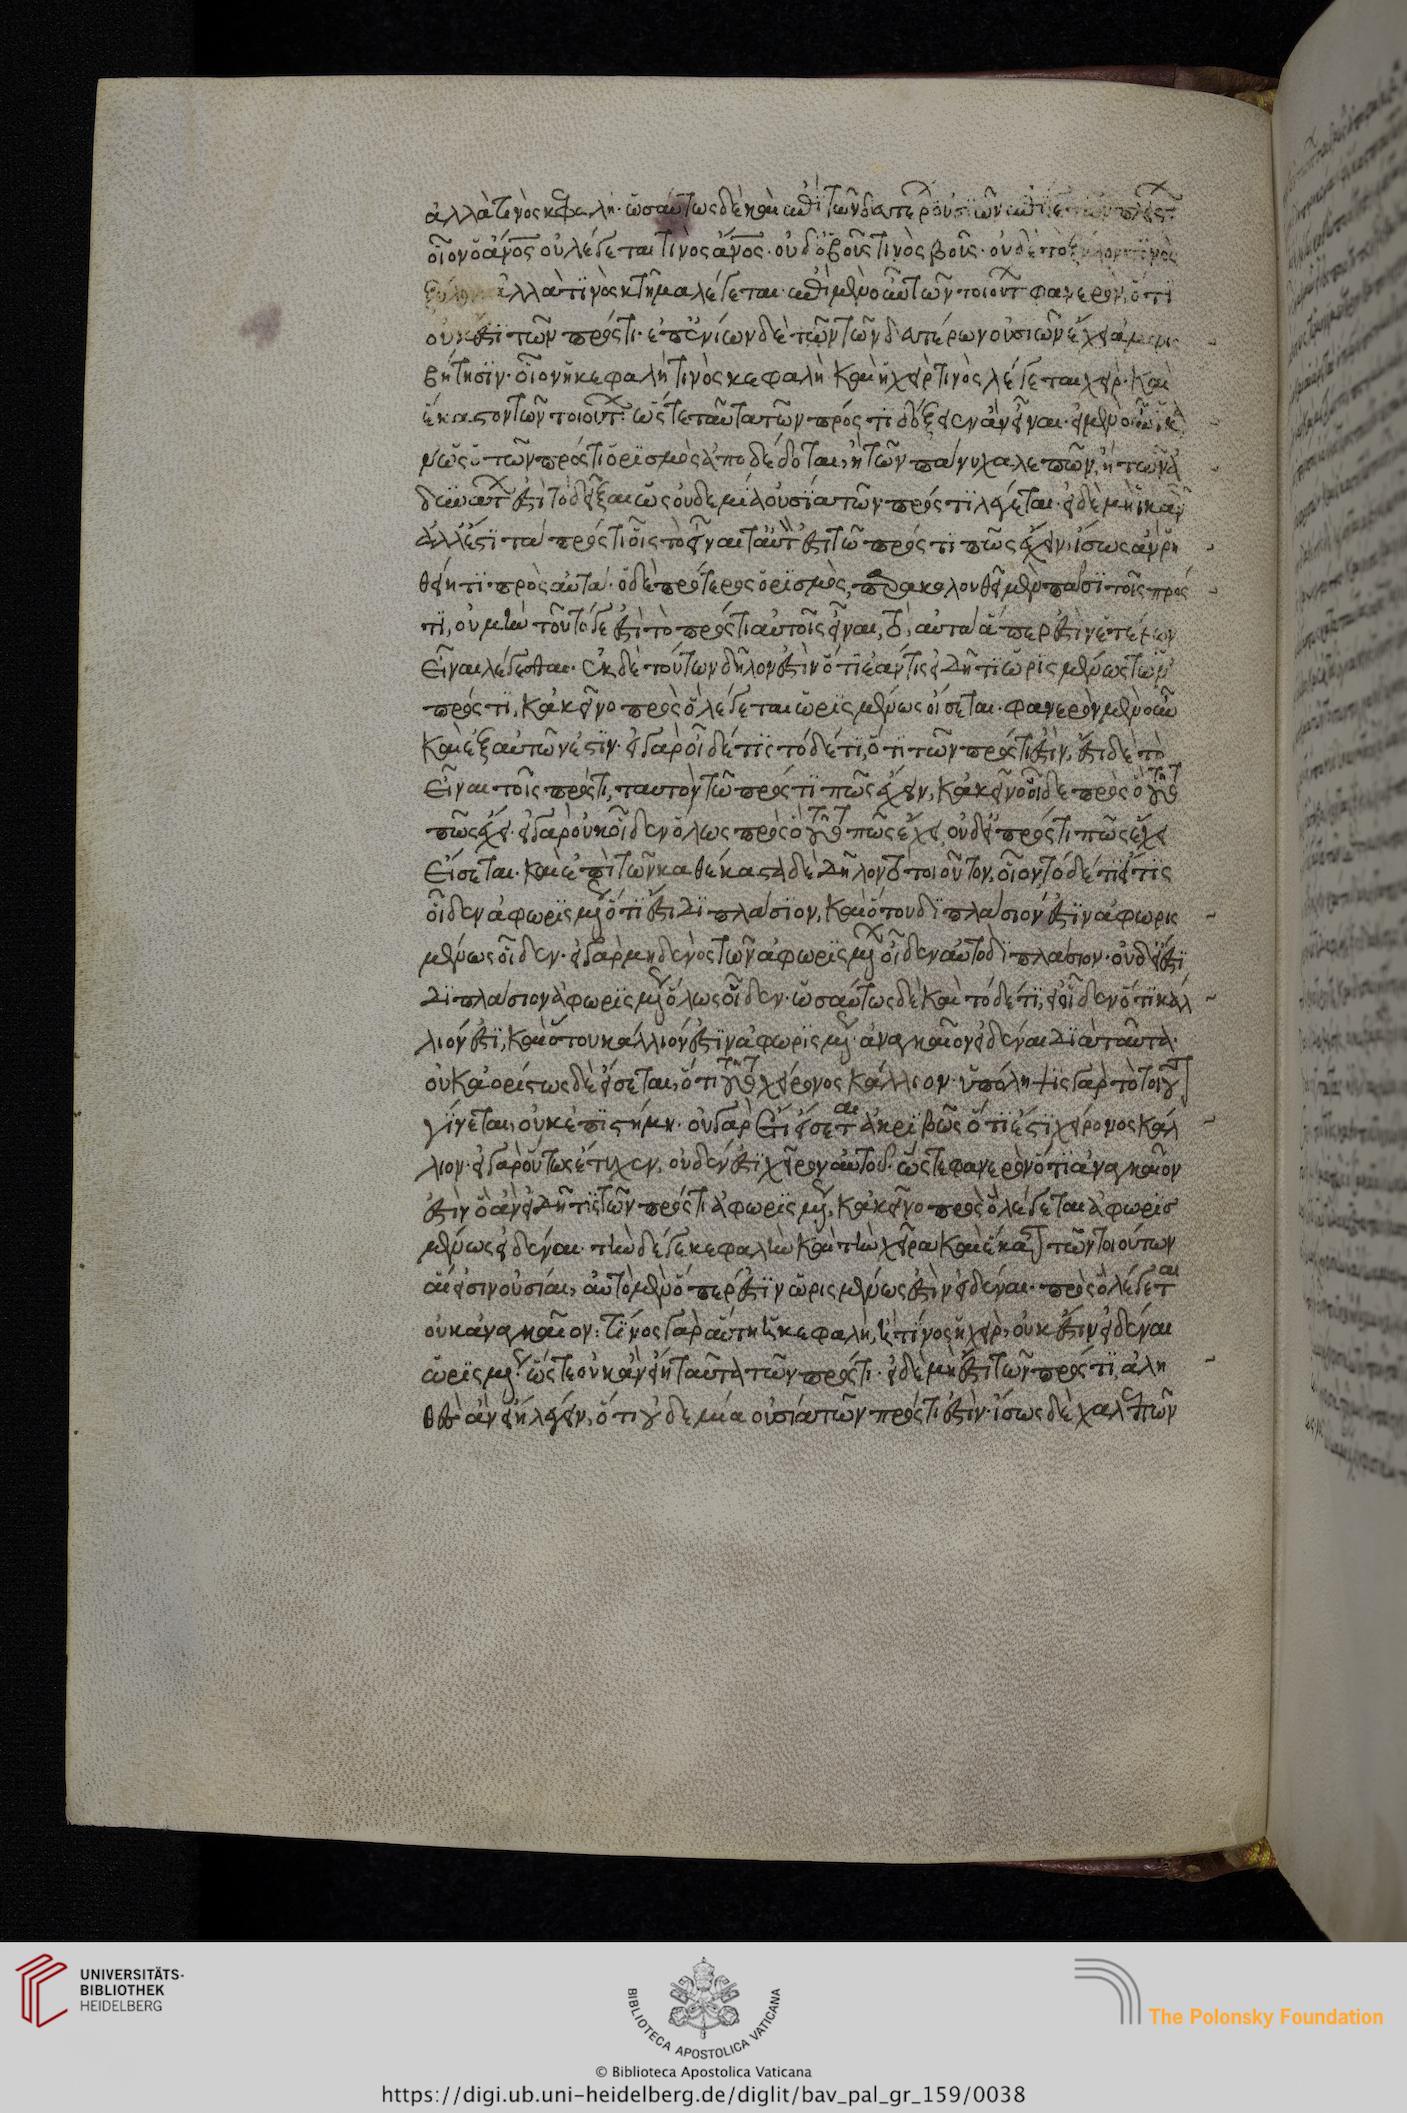 ἀλλὰ τινὸς κεφαλή· ὡσαύτως δὲ καὶ ἐπὶ τῶν δευτέρων οὐσιῶν ἐπί γε τῶν πλείστ
οἷον ὁ ἄνος οὐ λέγεται τινὸς ἄνος· οὐδ' ὁ βοῦς τινὸς βοῦς· οὐδὲ τὸ ξύλον τινὸς
ἀλλὰ τινὸς κτῆμα λέγεται· ἐπὶ μὲν οὖν τῶν τοιούτ φανερὸν, ὅτι
οὐκ ἔστι τῶν πρός τι· ἐπ' ἐνίων δὲ τῶν δευτέρων οὐσιῶν ἔχει ἀμφις
βήτησιν· οἷον ἡ κεφαλή τινὸς κεφαλὴ καὶ ἡ χεὶρ τινὸς λέγεται χείρ· καὶ
ἕκαστον τῶν τοιούτ· ὥστε ταῦτα τῶν πρός τι δόξειεν ἂν εἶναι· εἰ μὲν οὖν ἱκα
νῶς ὁ τῶν πρός τι ὁρισμὸς ἀποδέδοται, ἢ τῶν πάνυ χαλεπῶν, ἢ τῶν ἀ
δυνάτ ἐστὶ τὸ δεῖξαι ὡς οὐδεμία οὐσία τῶν πρός τι λέγεται· εἰ δὲ μὴ ἱκανῶς
ἀλλ' ἔστι τὰ πρός τι οἷς τὸ εἶναι ταὐτ ἐστὶ τῷ πρός τι πῶς ἔχειν, ἴσως ἂν ῥη
θείη τι πρὸς αὐτά· ὁ δὲ πρότερος ὁρισμὸς, παρακολουθεῖ μὲν πᾶσι τοῖς πρός
τι, οὐ μὴν τοῦτό γε ἐστὶ τὸ πρός τι αὐτοῖς εἶναι, τὸ αὐτὰ ἅπερ ἐστὶν ἑτέρων
εἶναι λέγεσθαι· ἐκ δὲ τούτων δῆλον ἐστὶν ὅτι ἐάν τις εἰδῇ τι ὡρισμένως τῶν
πρός τι, κἀκεῖνο πρὸς ὃ λέγεται ὡρισμένως εἴσεται· φανερὸν μὲν οὖν
καὶ ἐξ αὐτῶν ἐστιν· εἰ γὰρ οἶδέ τις τόδε τι, ὅτι τῶν πρός τι ἐστὶν, ἔστι δὲ τὸ
εἶναι τοῖς πρός τι, ταυτὸν τῷ πρός τι πῶς ἔχειν, κἀκεῖνο οἶδε πρὸς ὃ τοῦτο
πῶς ἔχει· εἰ γὰρ οὐκ οἶδεν ὅλως πρὸς ὃ τοῦτο πῶς ἔχει, οὐδ' εἰ πρός τι πῶς ἔχει
εἴσεται· καὶ ἐπὶ τῶν καθέκαστα δὲ δῆλον τὸ τοιοῦτον, οἷον τόδε τι εἴ τις
οἶδεν ἀφωρισμ ὅτι ἐστὶ διπλάσιον, καὶ ὅτου διπλάσιον ἐστὶν ἀφωρις
μένως οἶδεν· εἰ γὰρ μηδενὸς τῶν ἀφωρισμ οἶδεν αὐτὸ διπλάσιον· οὐδ' εἰ ἔστι
διπλάσιον ἀφωρισμ ὅλως οἶδεν· ὡσαύτως δὲ καὶ τόδε τι, εἰ οἶδεν ὅτι κάλ
λιόν ἐστι, καὶ ὅτου κάλλιόν ἐστιν ἀφωρισμ ἀναγκαῖον εἰδέναι διὰ ταῦτα·
οὐκ ἀορίστως δὲ εἴσεται, ὅτι τοῦτο χείρονος κάλλιον· ὑπόληψις γὰρ τὸ τοιοῦτ
γίνεται, οὐκ ἐπιστήμη· οὐ γὰρ ἔτι εἴσεται ἀκριβῶς ὅτι ἐστὶ χείρονος κάλ
λιον· εἰ γὰρ οὕτως ἔτυχεν, οὐδέν ἐστι χεῖρον αὐτοῦ· ὥστε φανερὸν ὅτι ἀναγκαῖον
ἐστὶν ὃ ἂν εἰδῇ τις τῶν πρός τι ἀφωρισμ, κἀκεῖνο πρὸς ὃ λέγεται ἀφωρισ
μένως εἰδέναι· τὴν δέ γε κεφαλὴν καὶ τὴν χεῖρα καὶ ἕκαστ τῶν τοιούτων
αἵ εἰσιν οὐσίαι, αὐτὸ μὲν ὅπερ ἐστὶν ὡρισμένως ἐστὶν εἰδέναι· πρὸς ὃ λέγεται
οὐκ ἀναγκαῖον· τίνος γὰρ αὕτη ἡ κεφαλὴ, ἢ τίνος ἡ χεὶρ, οὐκ ἔστιν εἰδέναι
ὡρισμ· ὥστε οὐκ ἂν εἴη ταῦτα τῶν πρός τι· εἰ δὲ μὴ ἔστι τῶν πρός τι, ἀλη
θὲς ἂν εἴη λέγειν, ὅτι οὐδεμία οὐσία τῶν πρός τι ἐστὶν· ἴσως δὲ χαλεπῶν
UNIVERSITÄTS-
BIBLIOTHEK
HEIDELBERG
BIBLIOTECA APOSTOLICA VATICANA
© Biblioteca Apostolica Vaticana
The Polonsky Foundation
https://digi.ub.uni-heidelberg.de/diglit/bav_pal_gr_159/0038